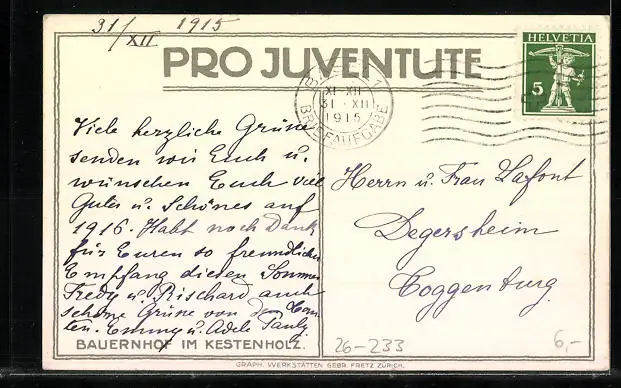 31/XII 1915
PRO JUVENTUTE
HELVETIA
5
XI-XII
31·XII
1915
BRIEFAUFGABE
Viele herzliche Grüsse
senden wir Euch u.
wünschen Euch viel
Gutes u. Schönes auf
1916. Habt noch Dank
für Euren so freundlichen
Empfang diesen Sommer
Fredy u. Rischard auch
schöne Grüsse von den Tan-
ten. Emmy u. Adele Pauly.
BAUERNHOF IM KESTENHOLZ.
Herrn u. Frau Lafont
Degersheim
Toggenburg
26-233
6,-
GRAPH. WERKSTÄTTEN GEBR. FRETZ ZÜRICH.